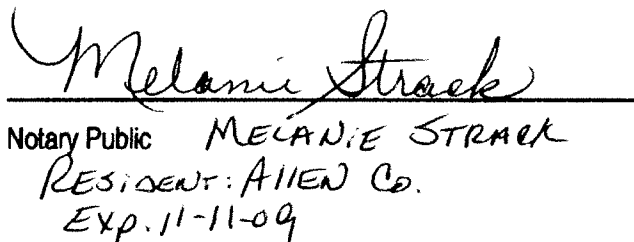 Melanie Strack
Notary Public MELANIE STRACK
RESIDENT: AllEN Co.
EXp. 11-11-09